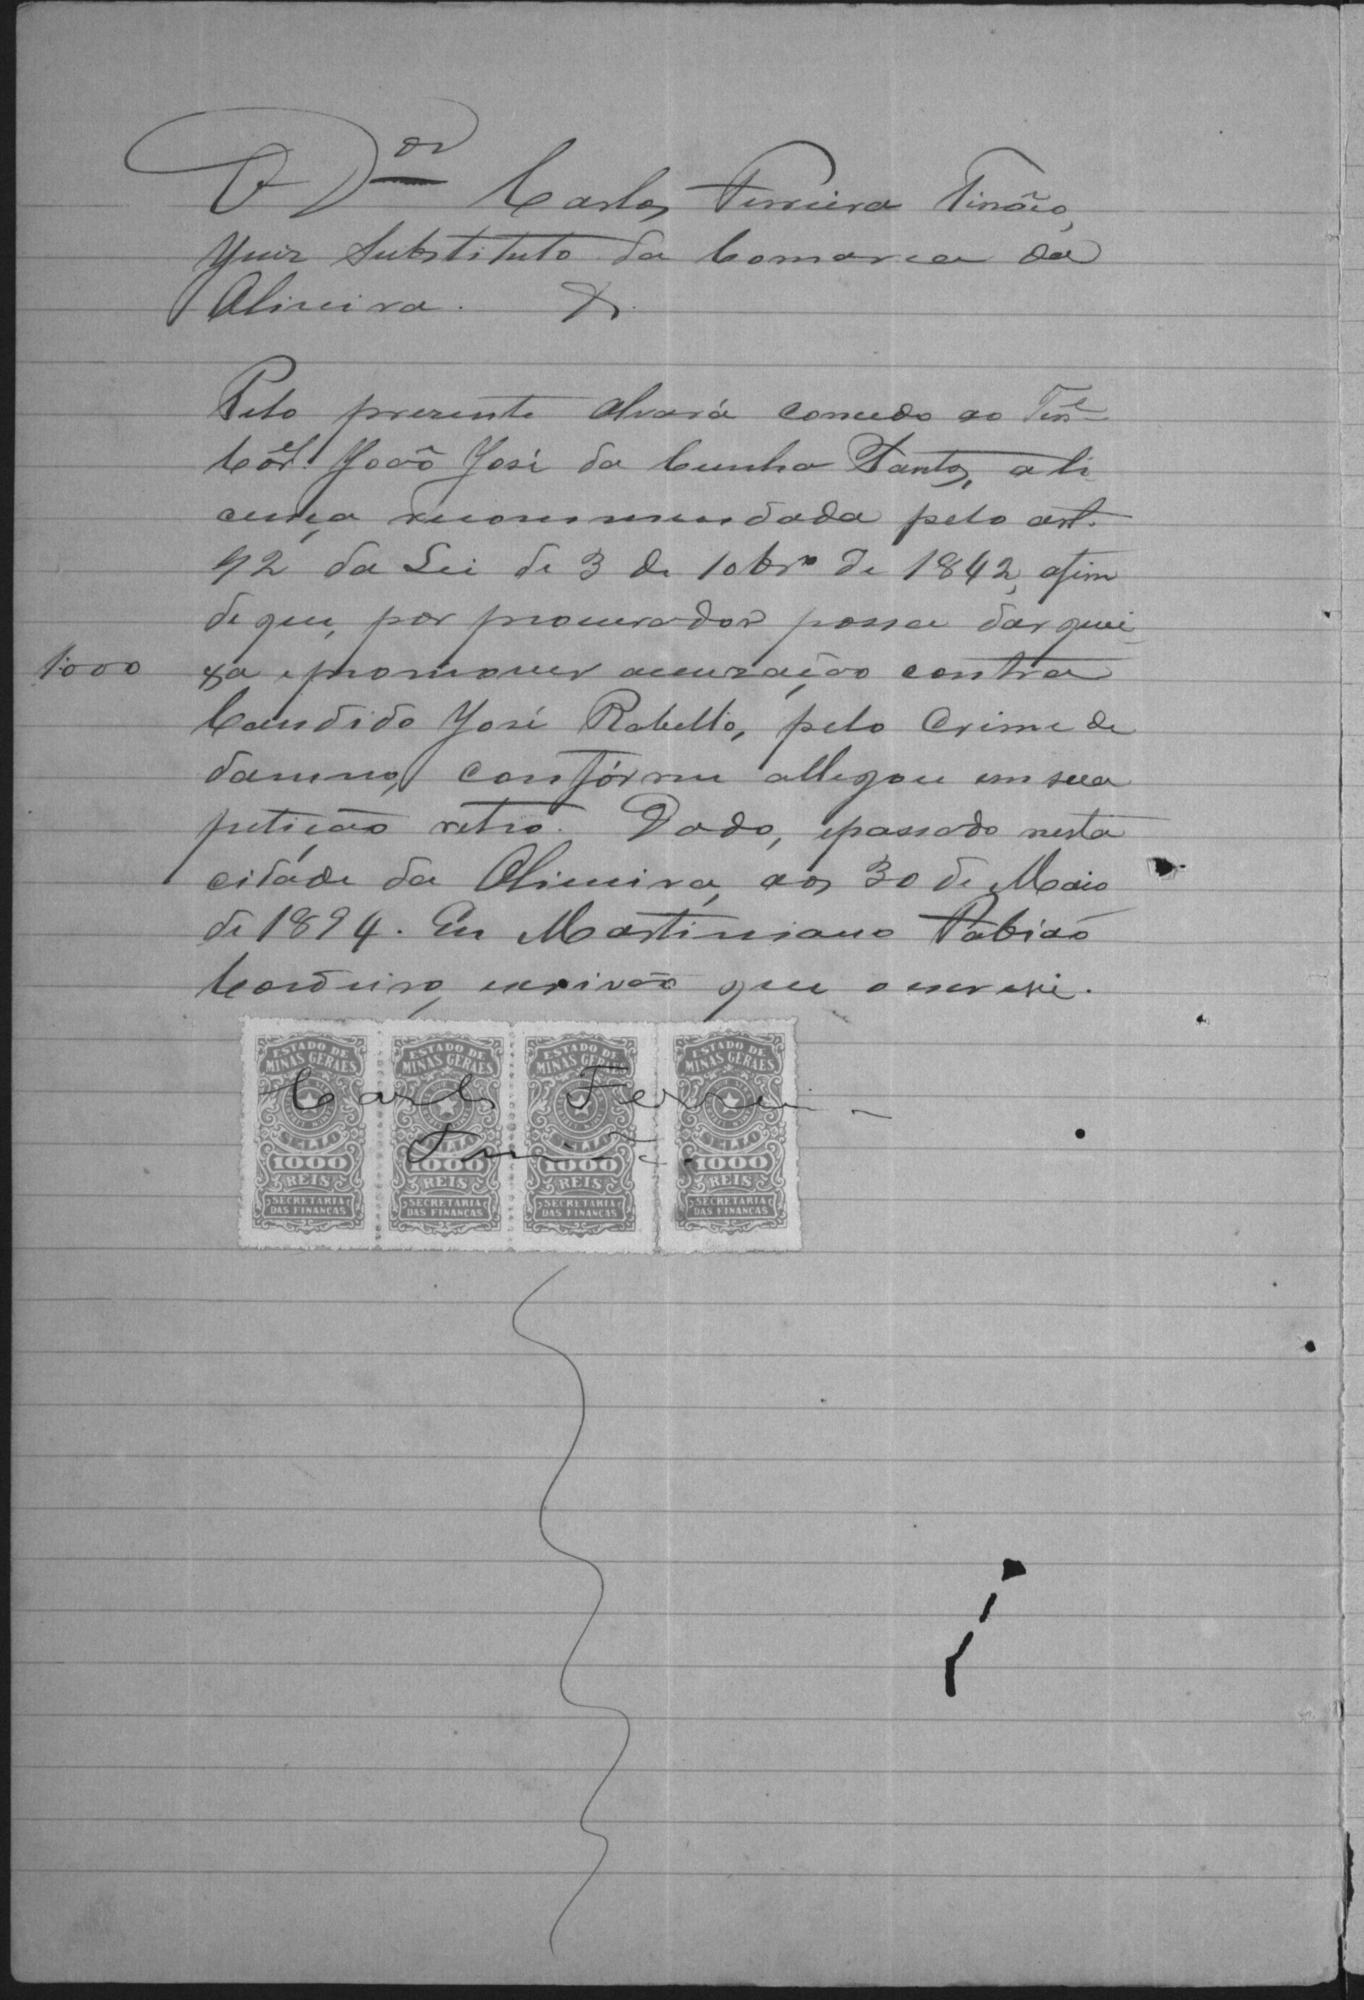 O Dor Carlos Ferreira Tinôco,
Juiz Substituto da Comarca da
Oliveira. &.
Pelo prezente alvará concedo ao Tene
Corel João José da Cunha Santos, a li
cença recommendada pelo art.
92 da Lei de 3 de 10bro de 1842, afim
de que, por procurador possa dar quei
1:000 xa e promover accuzação contra
Candido José Rabello, pelo crime de
damno, confórme allegou em sua
petição retro. Dado, e passado nesta
cidade da Oliveira, aos 30 de Maio
de 1894. Eu Martiniano Fabião
Cordeiro, escrivão que o escrevi.
ESTADO DE MINAS GERAES ESTADO DE MINAS GERAES ESTADO DE MINAS GERAES ESTADO DE MINAS GERAES
Carlos Ferrei
SELLO SELLO SELLO SELLO
1000 1000 1000 1000
REIS REIS REIS REIS
SECRETARIA DAS FINANCAS SECRETARIA DAS FINANCAS SECRETARIA DAS FINANCAS SECRETARIA DAS FINANCAS